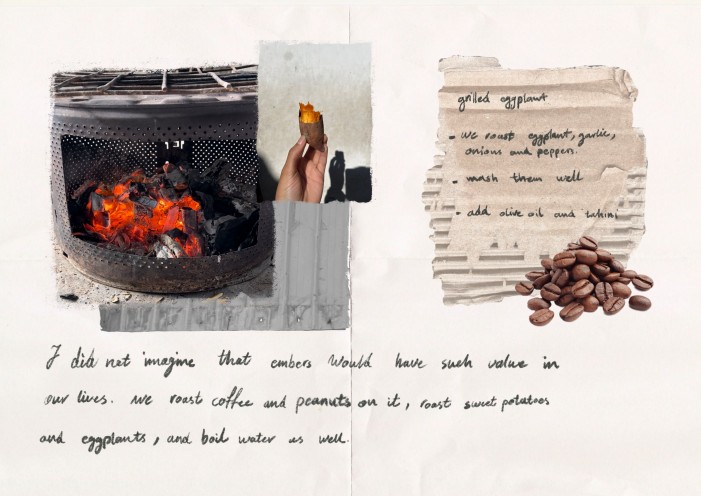 grilled eggplant
• We roast eggplant, garlic,
onions and peppers.
• mash them well
• add olive oil and tahini
I did not imagine that embers would have such value in
our lives. We roast coffee and peanuts on it, roast sweet potatoes
and eggplants, and boil water as well.